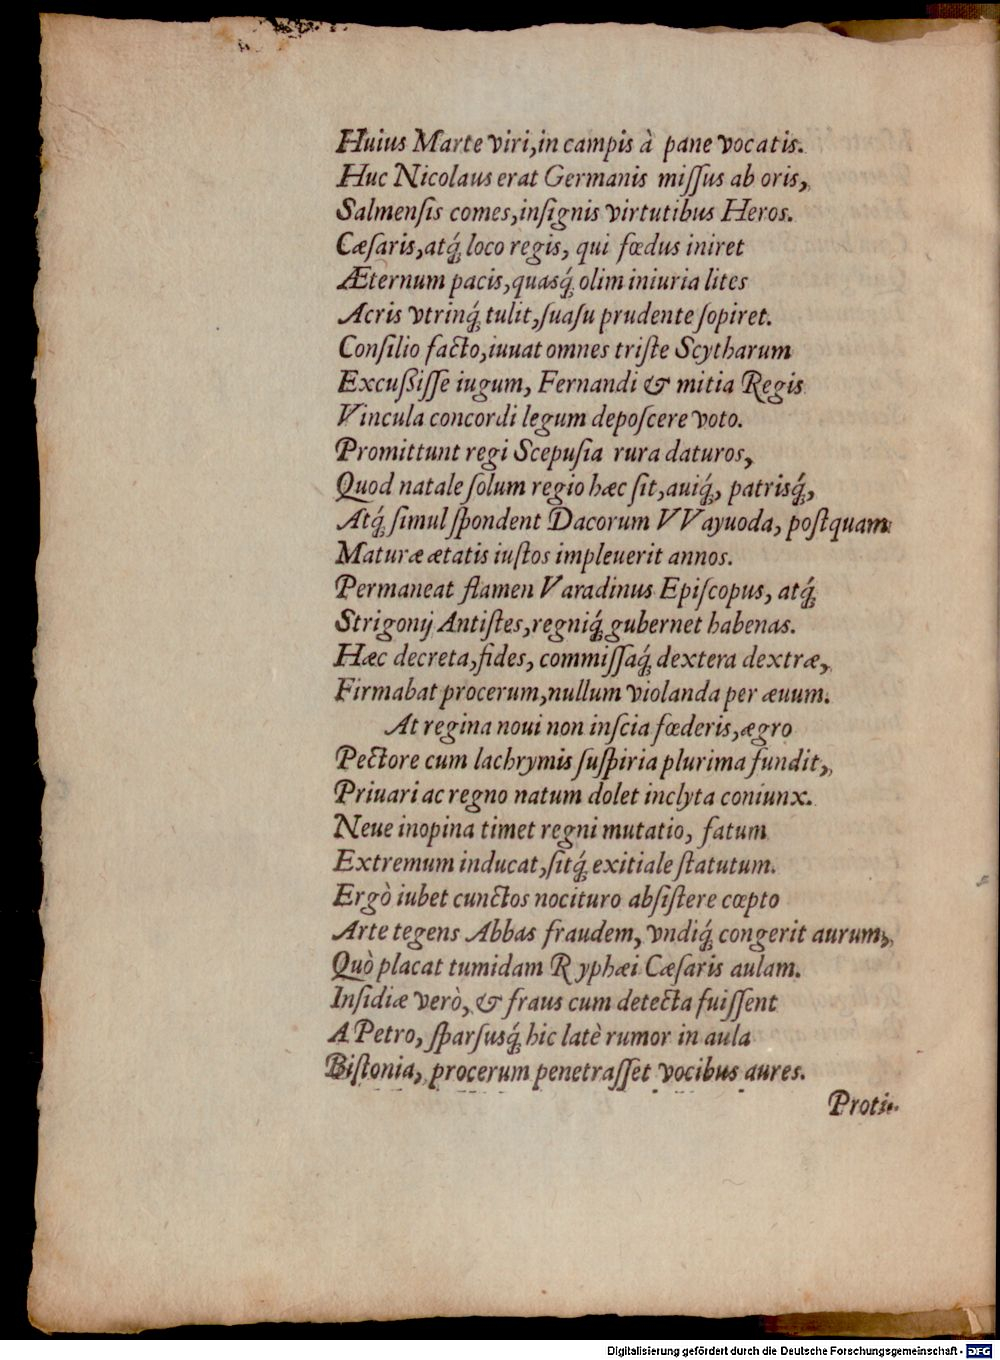 Huius Marte viri, in campis à pane vocatis.
Huc Nicolaus erat Germanis miſſus ab oris,
Salmenſis comes, inſignis virtutibus Heros.
Cæſaris, atq́; loco regis, qui fœdus iniret
Æternum pacis, quasq́; olim iniuria lites
Acris vtrinq́; tulit, ſuaſu prudente ſopiret.
Conſilio facto, iuuat omnes triſte Scytharum
Excuſsiſſe iugum, Fernandi & mitia Regis
Vincula concordi legum depoſcere voto.
Promittunt regi Scepuſia rura daturos,
Quod natale ſolum regio hæc ſit, auiq́;, patrisq́;,
Atq́; ſimul ſpondent Dacorum VVayuoda, poſtquam
Maturæ ætatis iuſtos impleuerit annos.
Permaneat flamen Varadinus Epiſcopus, atq́;
Strigonij Antiſtes, regniq́; gubernet habenas.
Hæc decreta, fides, commiſſaq́; dextera dextræ,
Firmabat procerum, nullum violanda per æuum.
At regina noui non inſcia fœderis, ægro
Pectore cum lachrymis ſuſpiria plurima fundit,
Priuari ac regno natum dolet inclyta coniunx.
Neue inopina timet regni mutatio, fatum
Extremum inducat, ſitq́; exitiale ſtatutum.
Ergò iubet cunctos nocituro abſiſtere cœpto
Arte tegens Abbas fraudem, vndiq́; congerit aurum,
Quò placat tumidam Ryphæi Cæſaris aulam.
Inſidiæ verò, & fraus cum detecta fuiſſent
A Petro, ſparſusq́; hic latè rumor in aula
Biſtonia, procerum penetraſſet vocibus aures.
Proti-
Digitalisierung gefördert durch die Deutsche Forschungsgemeinschaft - DFG